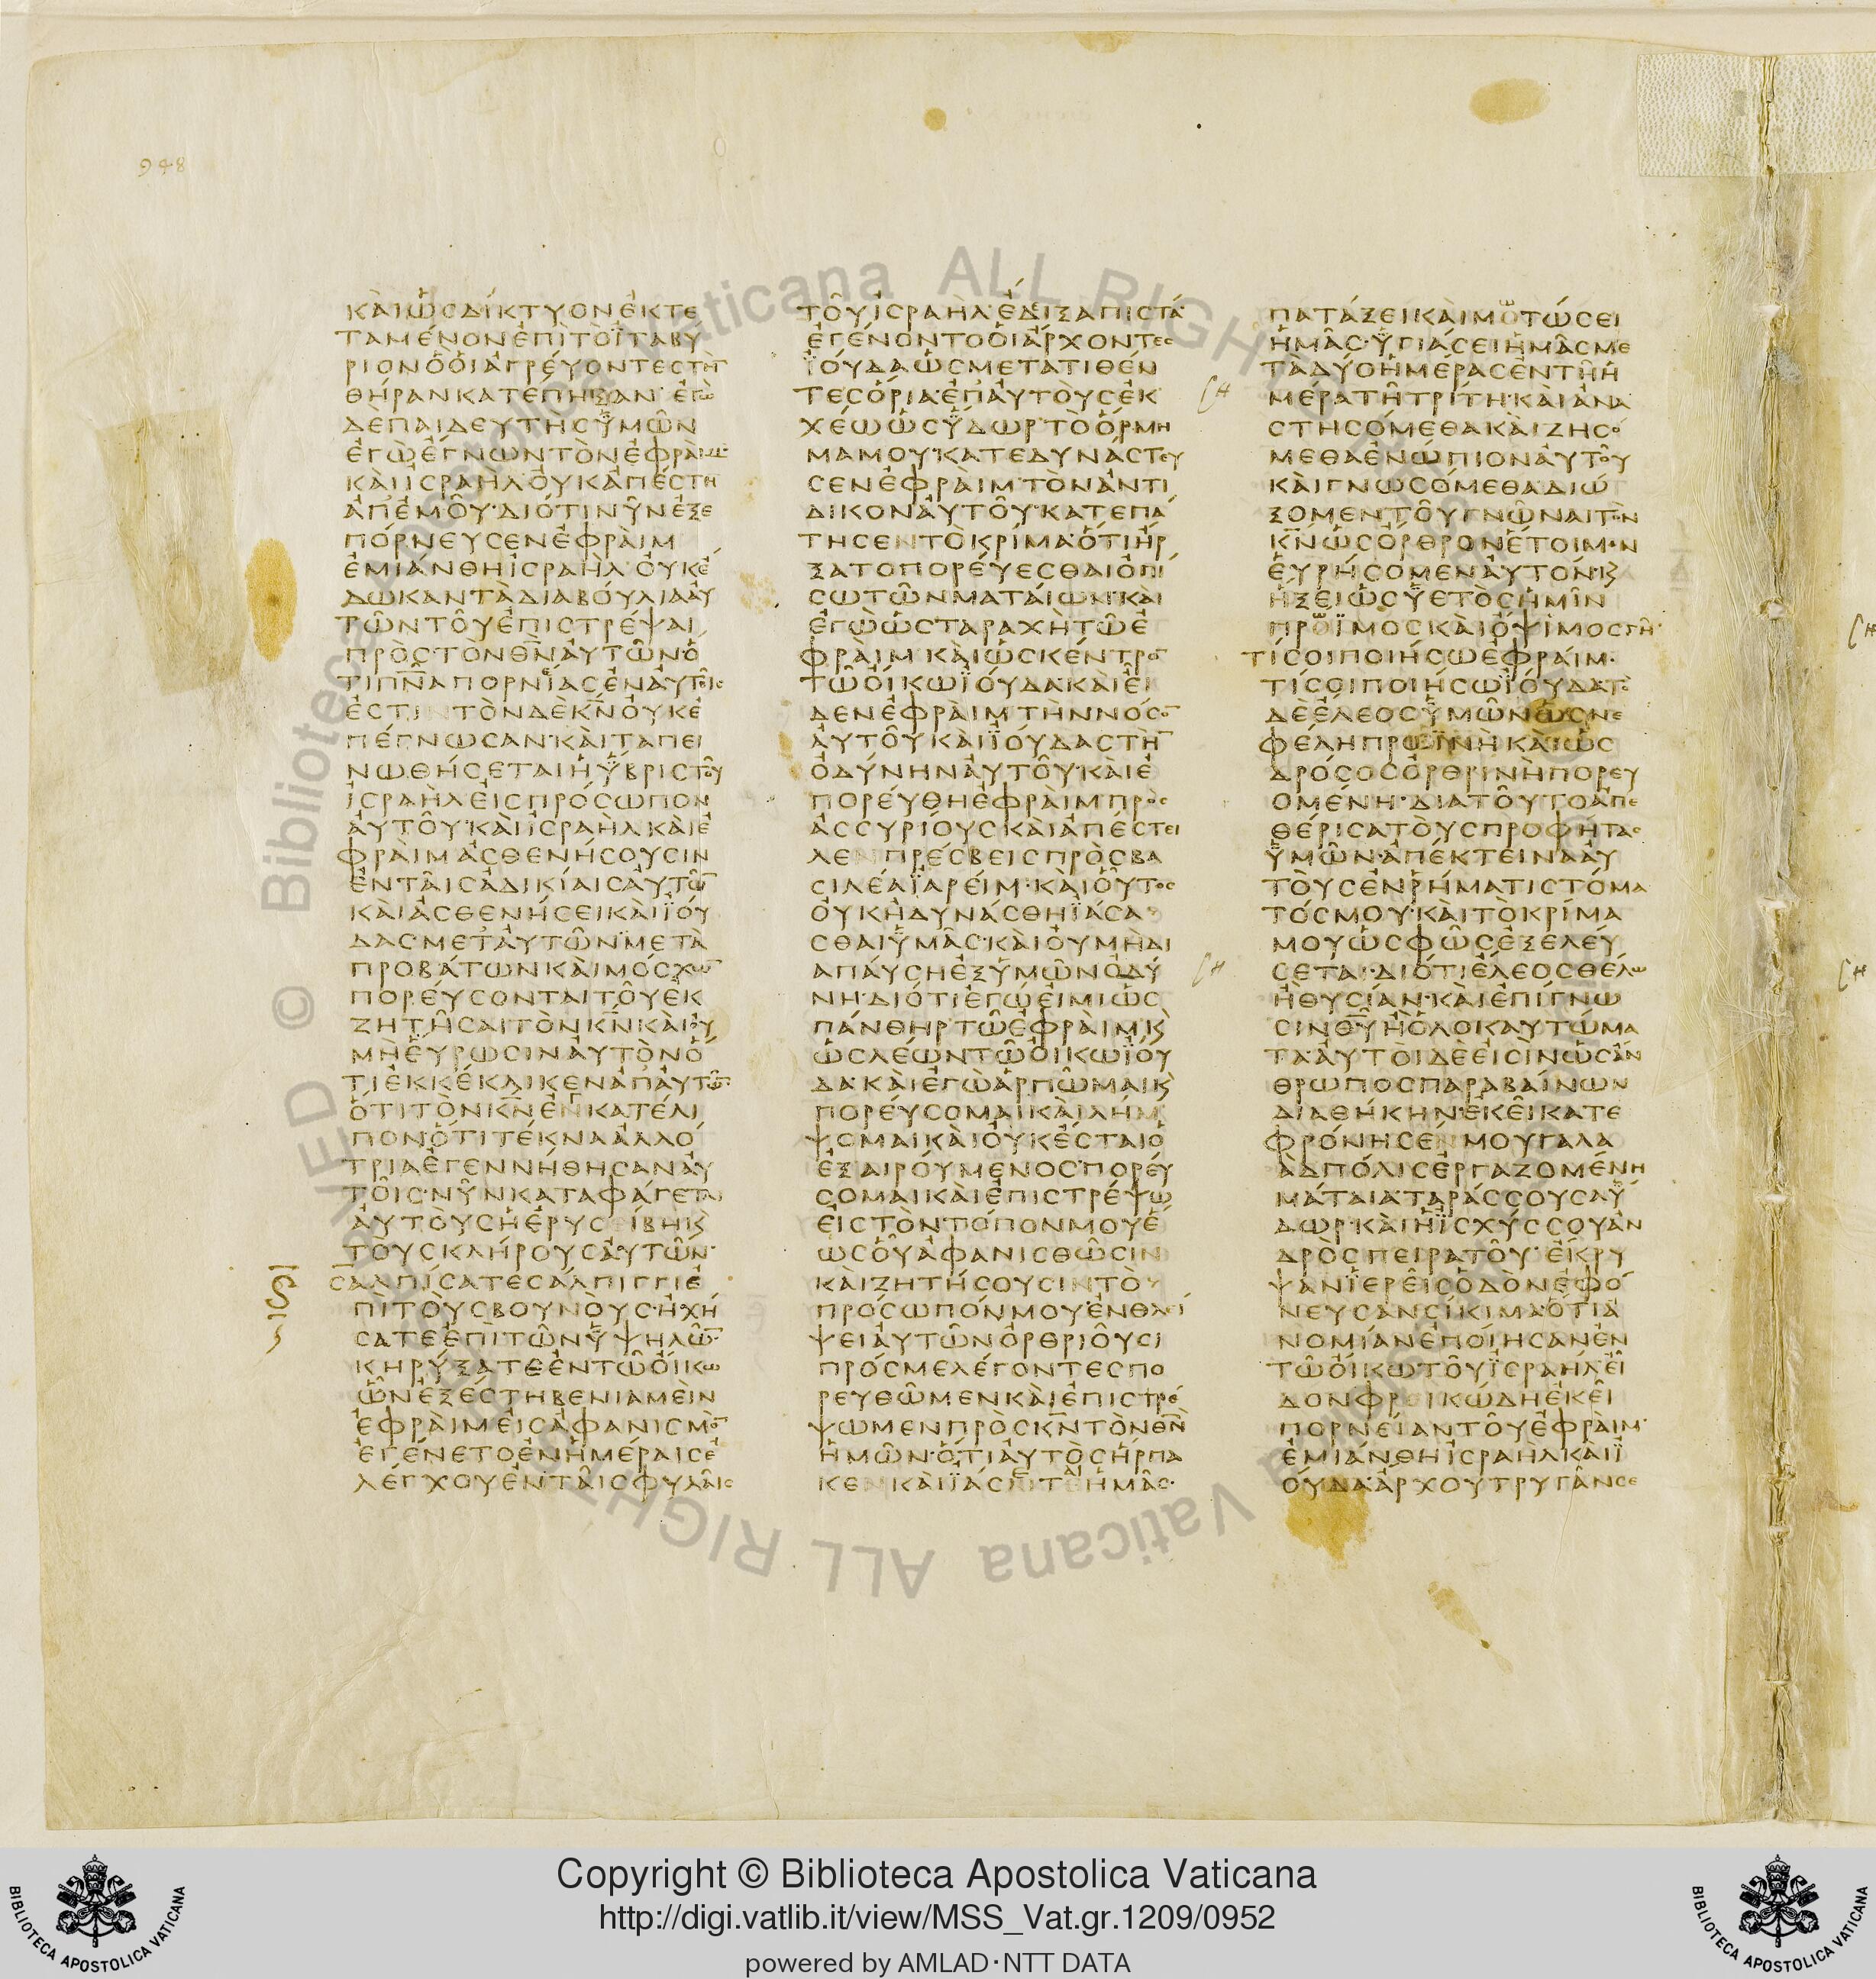 948
ΚΑΙΩΣΔΙΚΤΥΟΝΕΚΤΕ
ΤΑΜΕΝΟΝΕΠΙΤΟΪΤΑΒΥ
ΡΙΟΝΟΟΙΑΓΡΕΥΟΝΤΕΣΤΗ̅
ΘΗΡΑΝΚΑΤΕΠΗΞΑΝ·ΕΓΩ
ΔΕΠΑΙΔΕΥΤΗΣΫΜΩΝ
ΕΓΩΕΓΝΩΝΤΟΝΕΦΡΑΙΜ·
ΚΑΙΙΣΡΑΗΛΟΥΚΑΠΕΣΤΗ
ΑΠΕΜΟΥ·ΔΙΟΤΙΝΥΝΕΞΕ
ΠΟΡΝΕΥΣΕΝΕΦΡΑΙΜ
ΕΜΙΑΝΘΗΙΣΡΑΗΛ·ΟΥΚΕ
ΔΩΚΑΝΤΑΔΙΑΒΟΥΛΙΑΑΥ
ΤΩΝΤΟΥΕΠΙΣΤΡΕΨΑΙ
ΠΡΟΣΤΟΝΘ̅Ν̅ΑΥΤΩΝΟ
ΤΙΠ̅Ν̅ΑΠΟΡΝΙΑΣΕΝΑΥΤΟΙΣ
ΕΣΤΙΝΤΟΝΔΕΚ̅Ν̅ΟΥΚΕ
ΠΕΓΝΩΣΑΝ·ΚΑΙΤΑΠΕΙ
ΝΩΘΗΣΕΤΑΙΗΫΒΡΙΣΤΟΥ
ΙΣΡΑΗΛΕΙΣΠΡΟΣΩΠΟΝ
ΑΥΤΟΥ·ΚΑΙΙΣΡΑΗΛΚΑΙΕ
ΦΡΑΙΜΑΣΘΕΝΗΣΟΥΣΙΝ
ΕΝΤΑΙΣΑΔΙΚΙΑΙΣΑΥΤΩ̅
ΚΑΙΑΣΘΕΝΗΣΕΙΚΑΙΪΟΥ
ΔΑΣ·ΜΕΤΑΥΤΩΝΜΕΤΑ
ΠΡΟΒΑΤΩΝΚΑΙΜΟΣΧΩ̅
ΠΟΡΕΥΣΟΝΤΑΙΤΟΥΕΚ
ΖΗΤΗΣΑΙΤΟΝΚ̅Ν̅ΚΑΙΟΥ
ΜΗΕΥΡΩΣΙΝΑΥΤΟΝΟ
ΤΙΕΚΚΕΚΛΙΚΕΝΑΠΑΥΤΩ̅·
ΟΤΙΤΟΝΚ̅Ν̅ΕΝΚΑΤΕΛΙ
ΠΟΝΟΤΙΤΕΚΝΑΑΛΛΟ
ΤΡΙΑΕΓΕΝΝΗΘΗΣΑΝΑΥ
ΤΟΙΣ·ΝΥΝΚΑΤΑΦΑΓΕΤΑΙ
ΑΥΤΟΥΣΗΕΡΥΣΙΒΗΚϚ
ΤΟΥΣΚΛΗΡΟΥΣΑΥΤΩΝ·
ΣΑΛΠΙΣΑΤΕΣΑΛΠΙΓΓΙΕ
ΠΙΤΟΥΣΒΟΥΝΟΥΣ·ΗΧΗ
ΣΑΤΕΕΠΙΤΩΝΫΨΗΛΩ̅·
ΚΗΡΥΞΑΤΕΕΝΤΩΟΙΚΩ
ΩΝΕΞΕΣΤΗΒΕΝΙΑΜΕΙΝ
ΕΦΡΑΙΜΕΙΣΑΦΑΝΙΣΜΟ̅
ΕΓΕΝΕΤΟΕΝΗΜΕΡΑΙΣΕ
ΛΕΓΧΟΥΕΝΤΑΙΣΦΥΛΑΙΣ
ΤΟΥΙΣΡΑΗΛΕΔΙΞΑΠΙΣΤΑ·
ΕΓΕΝΟΝΤΟΟΙΑΡΧΟΝΤΕΣ
ΪΟΥΔΑΩΣΜΕΤΑΤΙΘΕΝ
ΤΕΣΟΡΙΑ·ΕΠΑΥΤΟΥΣΕΚ
ΧΕΩΩΣΫΔΩΡΤΟΟΡΜΗ
ΜΑΜΟΥ·ΚΑΤΕΔΥΝΑΣΤΕΥ
ΣΕΝΕΦΡΑΙΜΤΟΝΑΝΤΙ
ΔΙΚΟΝΑΥΤΟΥ·ΚΑΤΕΠΑ
ΤΗΣΕΝΤΟΚΡΙΜΑ·ΟΤΙΗΡ
ΞΑΤΟΠΟΡΕΥΕΣΘΑΙΟΠΙ
ΣΩΤΩΝΜΑΤΑΙΩΝ·ΚΑΙ
ΕΓΩΩΣΤΑΡΑΧΗΤΩΕ
ΦΡΑΙΜΚΑΙΩΣΚΕΝΤΡΟ̅
ΤΩΟΙΚΩΪΟΥΔΑ·ΚΑΙΕΙ
ΔΕΝΕΦΡΑΙΜΤΗΝΝΟΣΟ̅
ΑΥΤΟΥΚΑΙΪΟΥΔΑΣΤΗ̅
ΟΔΥΝΗΝΑΥΤΟΥ·ΚΑΙΕ
ΠΟΡΕΥΘΗΕΦΡΑΙΜΠΡΟΣ
ΑΣΣΥΡΙΟΥΣΚΑΙΑΠΕΣΤΕΙ
ΛΕΝΠΡΕΣΒΕΙΣΠΡΟΣΒΑ
ΣΙΛΕΑΪΑΡΕΙΜ·ΚΑΙΟΥΤΟΣ
ΟΥΚΗΔΥΝΑΣΘΗΪΑΣΑ
ΣΘΑΙΫΜΑΣ·ΚΑΙΟΥΜΗΔΙ
ΑΠΑΥΣΗΕΞΫΜΩΝΟΔΥ
ΝΗ·ΔΙΟΤΙΕΓΩΕΙΜΙΩΣ
ΠΑΝΘΗΡΤΩΕΦΡΑΙΜΚϚ
ΩΣΛΕΩΝΤΩΟΙΚΩΪΟΥ
ΔΑ·ΚΑΙΕΓΩΑΡΠΩΜΑΙΚϚ
ΠΟΡΕΥΣΟΜΑΙΚΑΙΛΗΜ
ΨΟΜΑΙΚΑΙΟΥΚΕΣΤΑΙΟ
ΕΞΑΙΡΟΥΜΕΝΟΣ·ΠΟΡΕΥ
ΣΟΜΑΙΚΑΙΕΠΙΣΤΡΕΨΩ
ΕΙΣΤΟΝΤΟΠΟΝΜΟΥΕ
ΩΣΟΥΑΦΑΝΙΣΘΩΣΙΝ
ΚΑΙΖΗΤΗΣΟΥΣΙΝΤΟ
ΠΡΟΣΩΠΟΝΜΟΥΕΝΘΛΙ
ΨΕΙΑΥΤΩΝΟΡΘΡΙΟΥΣΙ
ΠΡΟΣΜΕΛΕΓΟΝΤΕΣΠΟ
ΡΕΥΘΩΜΕΝΚΑΙΕΠΙΣΤΡΕ
ΨΩΜΕΝΠΡΟΣΚ̅Ν̅ΤΟΝΘ̅Ν̅
ΗΜΩΝ·ΟΤΙΑΥΤΟΣΗΡΠΑ
ΚΕΝΚΑΙΪΑΣΕΤΑΙΗΜΑΣ·
ΠΑΤΑΞΕΙΚΑΙΜΟΤΩΣΕΙ
ΗΜΑΣ·ΫΓΙΑΣΕΙΗΜΑΣΜΕ
ΤΑΔΥΟΗΜΕΡΑΣΕΝΤΗΗ
ΜΕΡΑΤΗΤΡΙΤΗ·ΚΑΙΑΝΑ
ΣΤΗΣΟΜΕΘΑΚΑΙΖΗΣΟ
ΜΕΘΑΕΝΩΠΙΟΝΑΥΤΟΥ
ΚΑΙΓΝΩΣΟΜΕΘΑΔΙΩ
ΞΟΜΕΝΤΟΥΓΝΩΝΑΙΤΟΝ
Κ̅Ν̅ΩΣΟΡΘΡΟΝΕΤΟΙΜΟΝ
ΕΥΡΗΣΟΜΕΝΑΥΤΟΝΚϚ
ΗΞΕΙΩΣΫΕΤΟΣΗΜΙΝ
ΠΡΟΪΜΟΣΚΑΙΟΨΙΜΟΣΓΗ·
ΤΙΣΟΙΠΟΙΗΣΩΕΦΡΑΙΜ·
ΤΙΣΟΙΠΟΙΗΣΩΪΟΥΔΑΤΟ
ΔΕΕΛΕΟΣΫΜΩΝΩΣΝΕ
ΦΕΛΗΠΡΩΪΝΗΚΑΙΩΣ
ΔΡΟΣΟΣΟΡΘΡΙΝΗΠΟΡΕΥ
ΟΜΕΝΗ·ΔΙΑΤΟΥΤΟΑΠΕ
ΘΕΡΙΣΑΤΟΥΣΠΡΟΦΗΤΑΣ
ΫΜΩΝ·ΑΠΕΚΤΕΙΝΑΑΥ
ΤΟΥΣΕΝΡΗΜΑΤΙΣΤΟΜΑ
ΤΟΣΜΟΥ·ΚΑΙΤΟΚΡΙΜΑ
ΜΟΥΩΣΦΩΣΕΞΕΛΕΥ
ΣΕΤΑΙ·ΔΙΟΤΙΕΛΕΟΣΘΕΛΩ
ΗΘΥΣΙΑΝ·ΚΑΙΕΠΙΓΝΩ
ΣΙΝΘ̅Υ̅ΗΟΛΟΚΑΥΤΩΜΑ
ΤΑ·ΑΥΤΟΙΔΕΕΙΣΙΝΩΣΑΝ
ΘΡΩΠΟΣΠΑΡΑΒΑΙΝΩΝ
ΔΙΑΘΗΚΗΝ·ΕΚΕΙΚΑΤΕ
ΦΡΟΝΗΣΕΝΜΟΥΓΑΛΑ
ΑΔΠΟΛΙΣΕΡΓΑΖΟΜΕΝΗ
ΜΑΤΑΙΑΤΑΡΑΣΣΟΥΣΑΫ
ΔΩΡ·ΚΑΙΗΪΣΧΥΣΣΟΥΑΝ
ΔΡΟΣΠΕΙΡΑΤΟΥ·ΕΚΡΥ
ΨΑΝΪΕΡΕΙΣΟΔΟΝΕΦΟ
ΝΕΥΣΑΝΣΙΚΙΜΑ·ΟΤΙΑ
ΝΟΜΙΑΝΕΠΟΙΗΣΑΝΕΝ
ΤΩΟΙΚΩΤΟΥΪΣΡΑΗΛΕΙ
ΔΟΝΦΡΙΚΩΔΗΕΚΕΙ
ΠΟΡΝΕΙΑΝΤΟΥΕΦΡΑΙΜ·
ΕΜΙΑΝΘΗΙΣΡΑΗΛΚΑΙΪ
ΟΥΔΑ·ΑΡΧΟΥΤΡΥΓΑΝΣΕ
Copyright © Biblioteca Apostolica Vaticana
http://digi.vatlib.it/view/MSS_Vat.gr.1209/0952
powered by AMLAD·NTT DATA
BIBLIOTECA APOSTOLICA VATICANA
BIBLIOTECA APOSTOLICA VATICANA